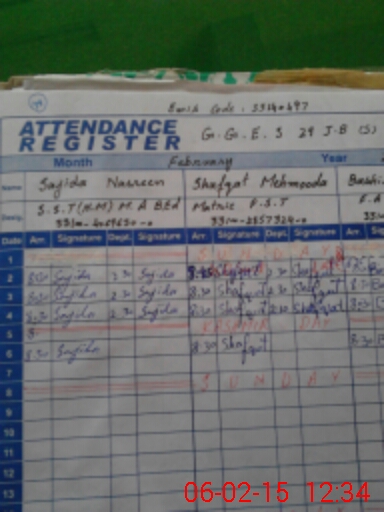 Emis Code . 33140497
ATTENDANCE REGISTER G.G.E.S 29 J.B (S)
Month February Year
Name Sajida Nasreen Shafqat Mehmooda
Desig. S.S.T (H.M) M.A B.Ed Matric P.S.T
Date Arr. Signature Dept. Signature Arr. Signature Dept. Signature Arr.
1 SUNDAY
2 8.30 Sajida 2.30 Sajida Shafqat 2.30 Shafqat
3 8.30 Sajida 2.30 Sajida 8.30 Shafqat 2.30 Shafqat
4 8.30 Sajida 2.30 Sajida 8.30 Shafqat 2.30 Shafqat
5 KASHMIR DAY
6 8.30 Sajida 8.30 Shafqat
7
8 SUNDAY
9
10
11
12
13
06-02-15 12:34